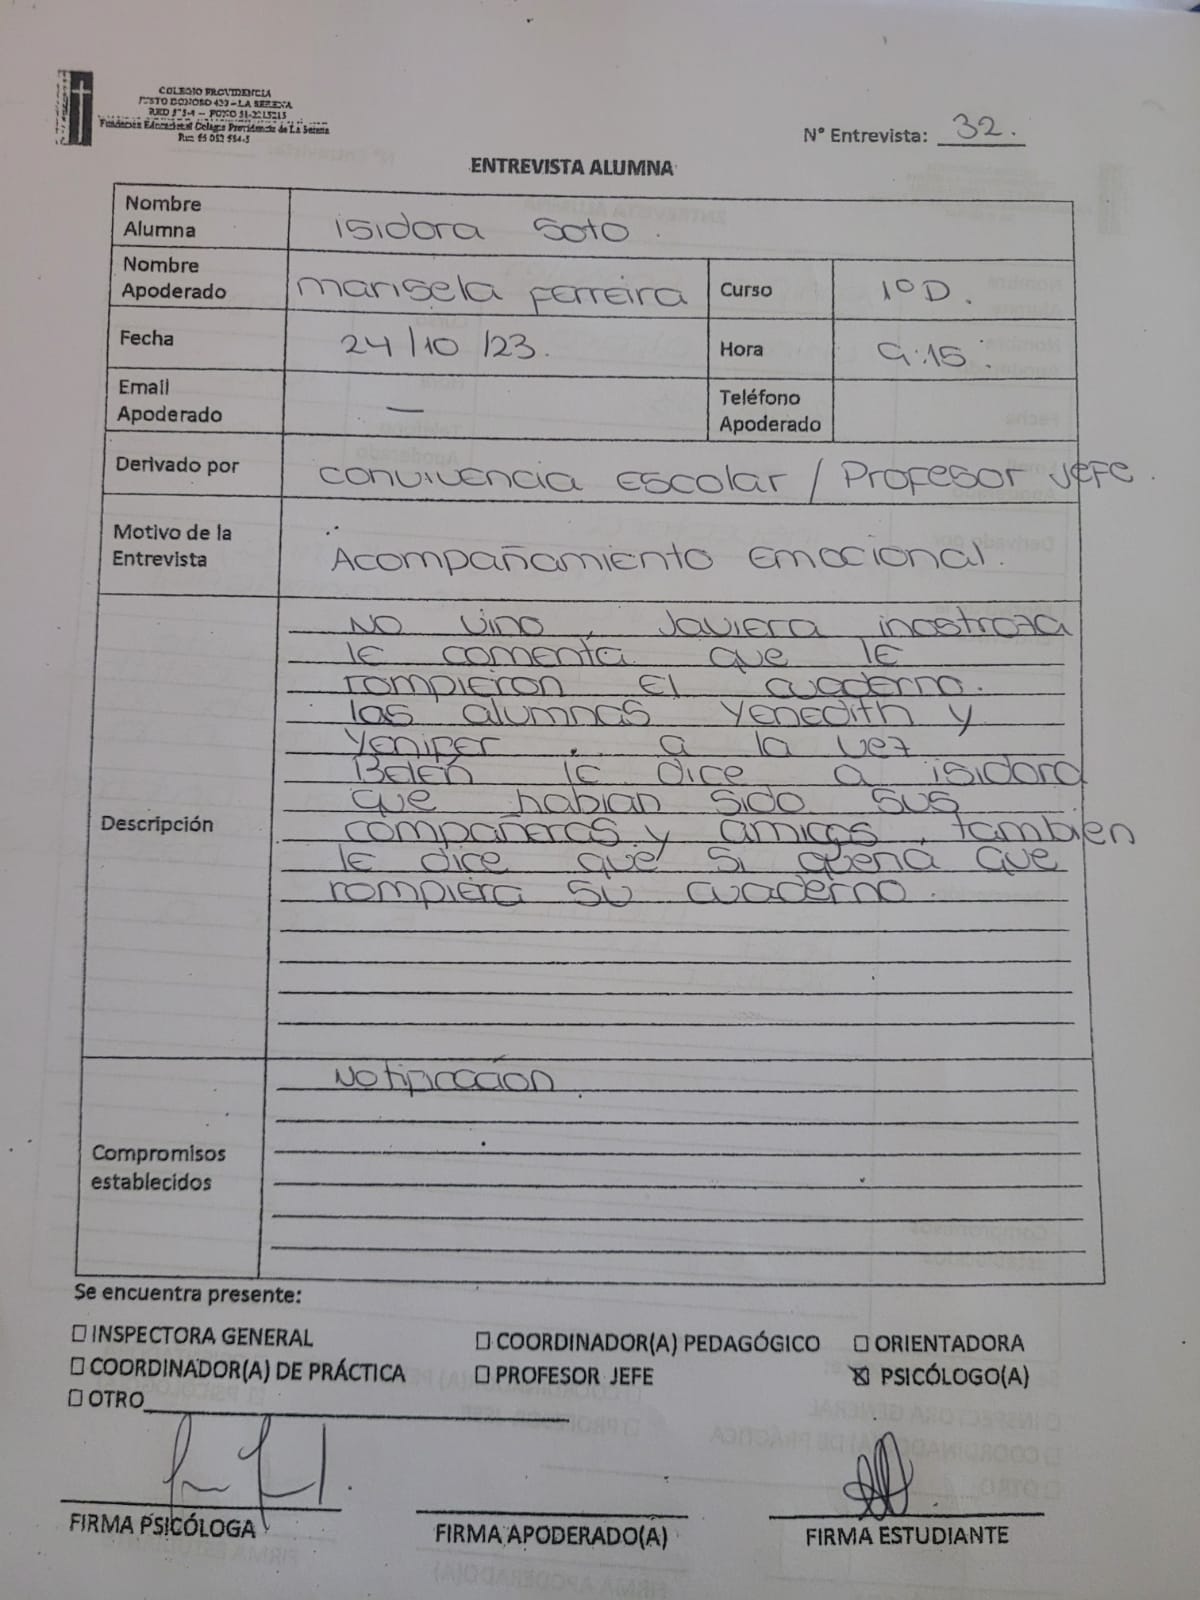 COLEGIO PROVIDENCIA
JUSTO DONOSO 420 – LA SERENA
Fundación Educacional Colegio Providencia de La Serena
N° Entrevista: 32.
ENTREVISTA ALUMNA
Nombre Alumna isidora Soto.
Nombre Apoderado marisela Ferreira Curso 1° D.
Fecha 24/10/23. Hora 9:15.
Email Apoderado — Teléfono Apoderado
Derivado por convivencia Escolar / Profesor Jefe.
Motivo de la Entrevista Acompañamiento Emocional.
Descripción
No vino, Javiera inostroza
le comenta que le
rompieron El cuaderno.
las alumnas Yenedith y
Yenifer . a la vez
Belén le dice a isidora
que habian sido sus
compañeras y amigas, tambien
le dice que si queria que
rompiera su cuaderno.
Compromisos establecidos
Notificacion
Se encuentra presente:
☐ INSPECTORA GENERAL ☐ COORDINADOR(A) PEDAGÓGICO ☐ ORIENTADORA
☐ COORDINADOR(A) DE PRÁCTICA ☐ PROFESOR JEFE ☒ PSICÓLOGO(A)
☐ OTRO
FIRMA PSICÓLOGA FIRMA APODERADO(A) FIRMA ESTUDIANTE